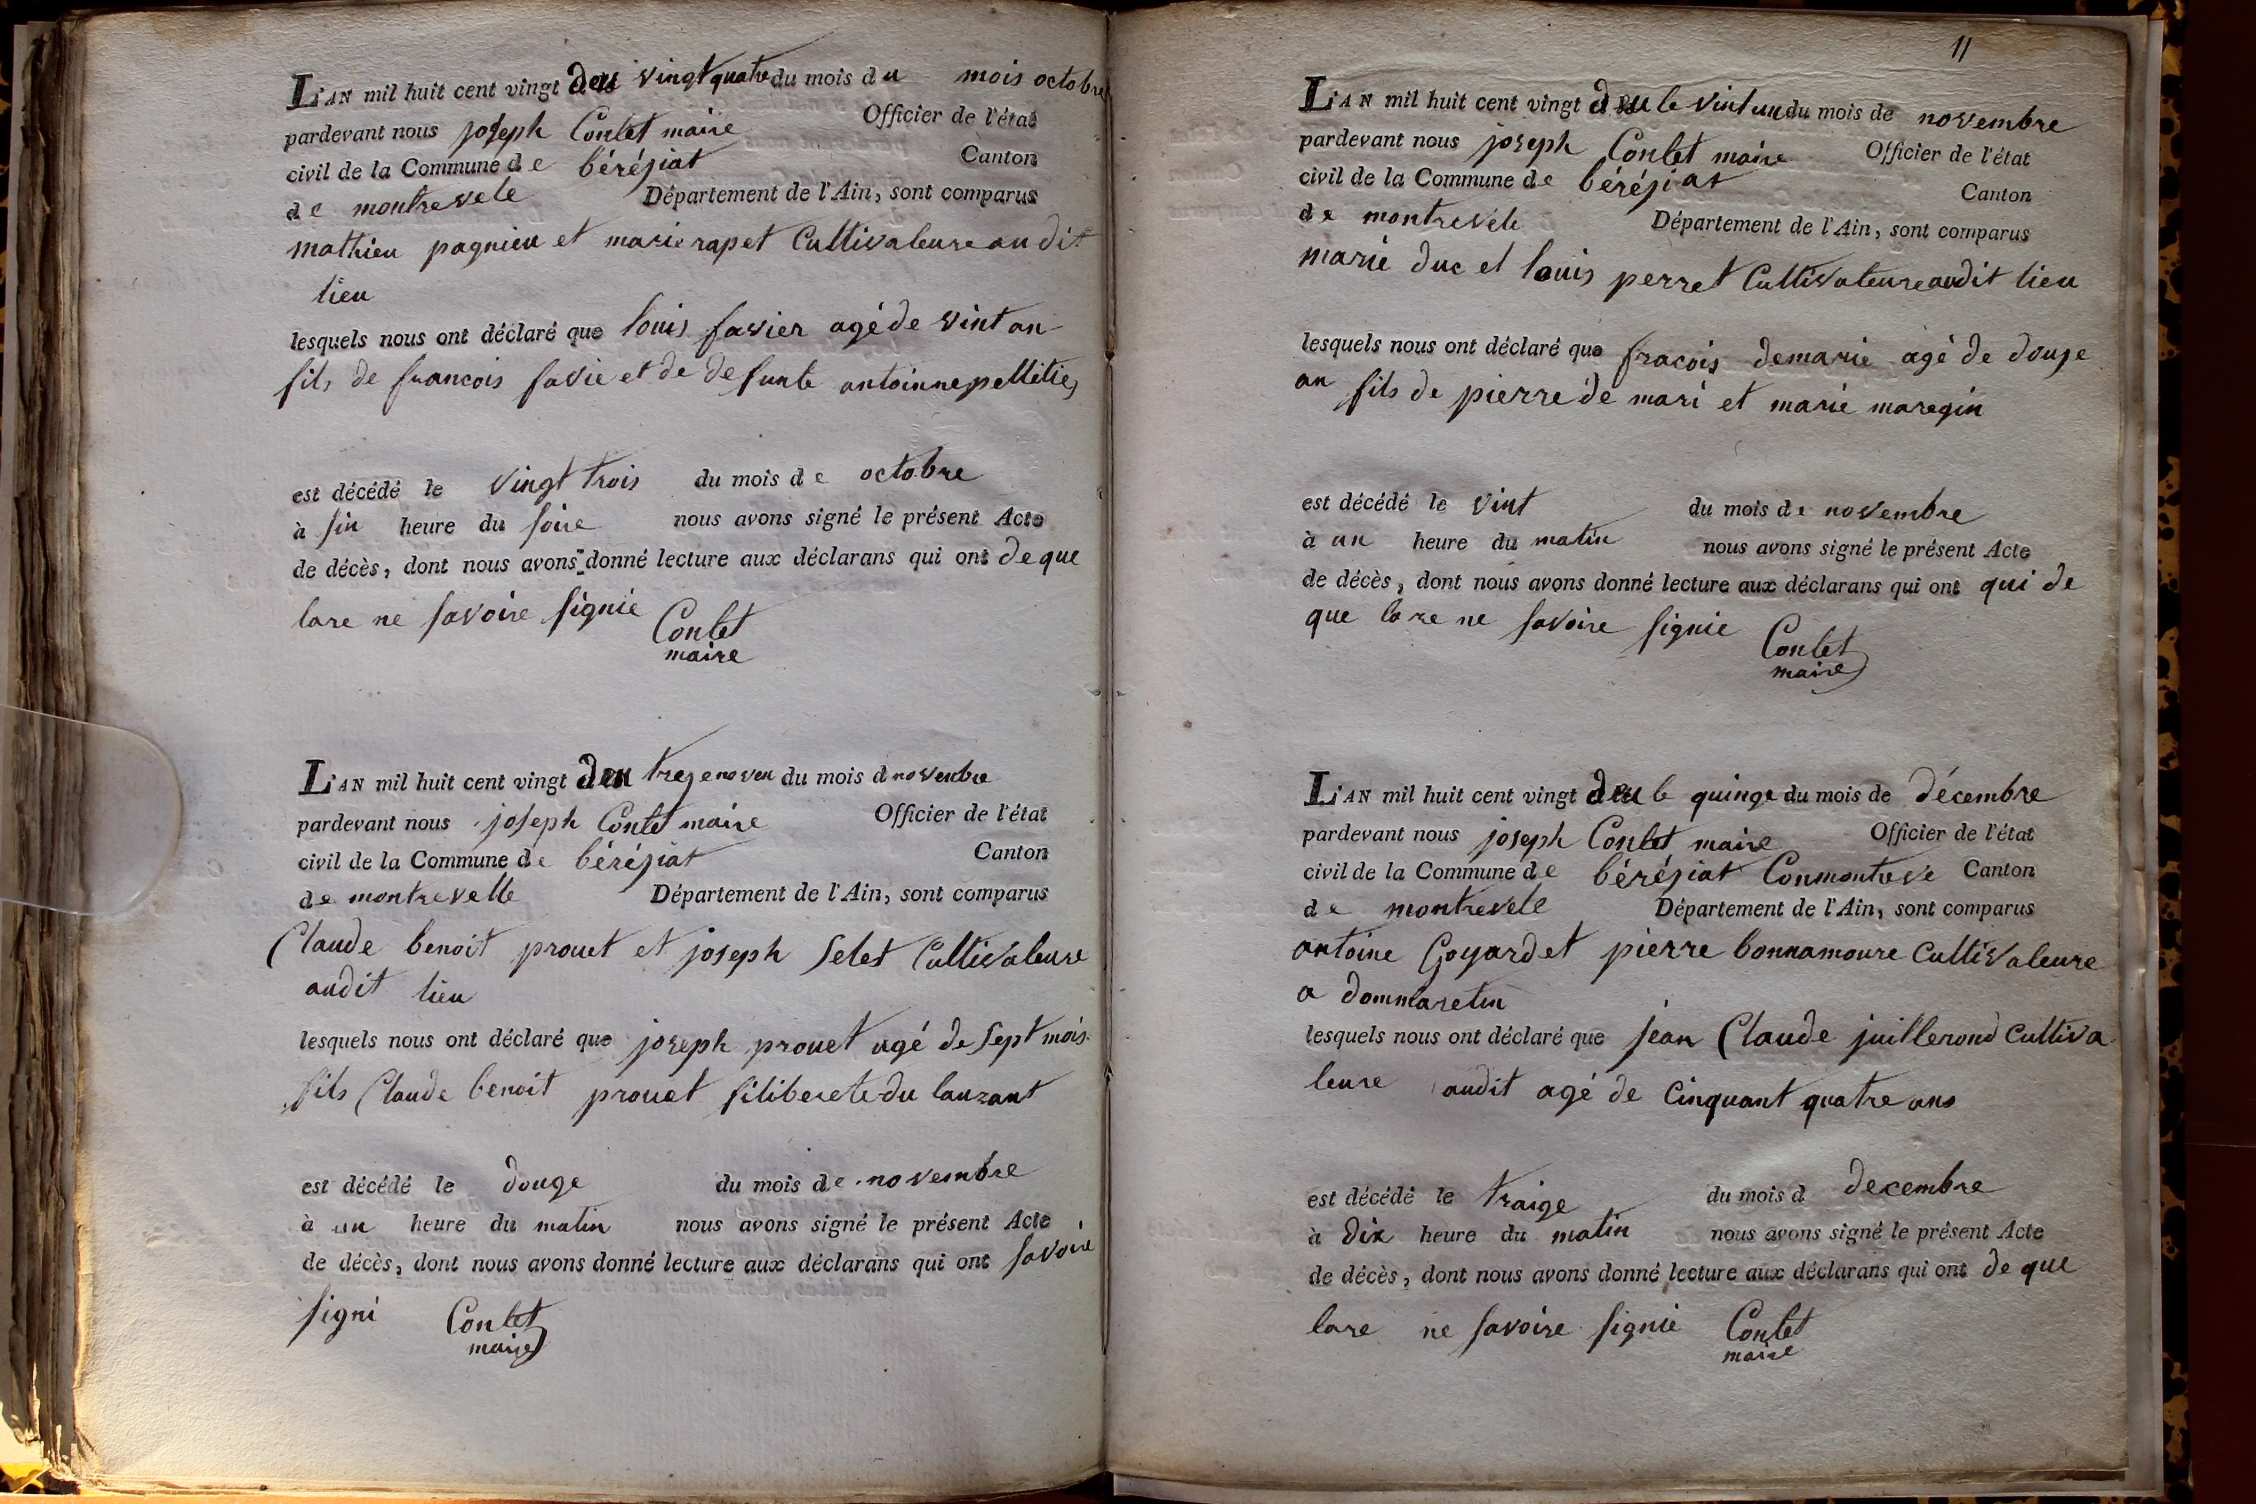 L'AN mil huit cent vingt deu vingt quatre du mois du mois octobre
pardevant nous joseph Contet maire Officier de l'état
civil de la Commune de béréziat Canton
de montrevele Département de l'Ain, sont comparus
mathieu pagnieu et marie rapet Cultivateure au dit
lieu
lesquels nous ont déclaré que louis favier agé de vint an
fils de francois favie et de defunte antoinne pellitie
est décédé le vingt trois du mois de octobre
à sin heure du soire nous avons signé le présent Acte
de décès, dont nous avons donné lecture aux déclarans qui ont de que
lare ne savoire signie Contet
maire
L'AN mil huit cent vingt deu treze du mois d novenbre
pardevant nous joseph Contet maire Officier de l'état
civil de la Commune de béréziat Canton
de montrevelle Département de l'Ain, sont comparus
Claude benoit prouet et joseph Selet Cultivateure
audit lieu
lesquels nous ont déclaré que joseph prouet agé de sept mois
fils Claude benoit prouet filiberete du lauzant
est décédé le douze du mois de novembre
à un heure du matin nous avons signé le présent Acte
de décès, dont nous avons donné lecture aux déclarans qui ont savoire
signi Contet
maire
11
L'AN mil huit cent vingt deu le vint un du mois de novembre
pardevant nous joseph Contet maire Officier de l'état
civil de la Commune de béréziat Canton
de montrevele Département de l'Ain, sont comparus
marie duc et louis perret Cultivateure audit lieu
lesquels nous ont déclaré que fracois demarie agé de douze
an fils de pierre de mari et marie maregin
est décédé le vint du mois de novembre
à un heure du matin nous avons signé le présent Acte
de décès, dont nous avons donné lecture aux déclarans qui ont qui de
que lare ne savoire signie Contet
maire
L'AN mil huit cent vingt deu le quinze du mois de décembre
pardevant nous joseph Contet maire Officier de l'état
civil de la Commune de béréziat Conmontreve Canton
de montrevele Département de l'Ain, sont comparus
antoine Goyard et pierre bonnamoure Cultivateure
a dommaretin
lesquels nous ont déclaré que jean Claude juillerond Cultiva
teure audit agé de Cinquant quatre ans
est décédé le traize du mois d decembre
à dix heure du matin nous avons signé le présent Acte
de décès, dont nous avons donné lecture aux déclarans qui ont de que
lare ne savoire signie Contet
maire